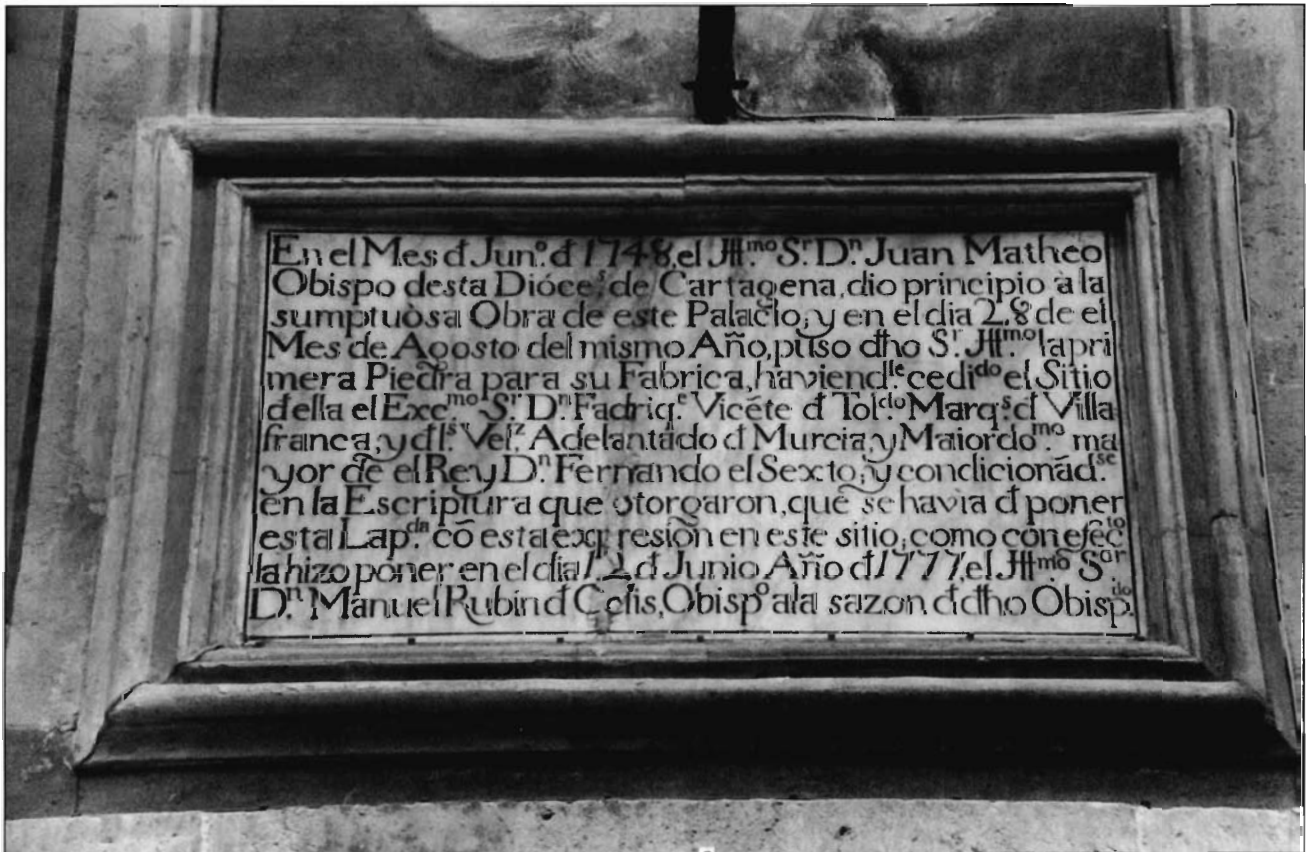 En el Mes đ Jun.º đ 1748, el Jll.mo S.r D.n Juan Matheo
Obispo desta Dióce.s de Cartagena, dio principio à la
sumptuòsa Obra de este Palacio; y en el dia 28 de el
Mes de Agosto del mismo Año, puso dho S.r Jll.mo la pri
mera Piedra para su Fabrica, haviend.le cedi.do el Sitio
della el Exc.mo S.r D.n Fadriq.e Vicẽte đ Tol.do Marq.s đ Villa
franca, y đ l.s Vel.z Adelantado đ Murcia, y Maiordo.mo ma
yor de el Rey D.n Fernando el Sexto; y condicionãd.se
en la Escriptura que otorgaron, que se havia đ poner
esta Lap.da cõ esta expresion en este sitio; como con efec.to
la hizo poner en el dia 12 đ Junio Año đ 1777, el Jll.mo S.or
D.n Manuel Rubin đ Celis, Obisp.o a la sazon đ dho Obisp.do